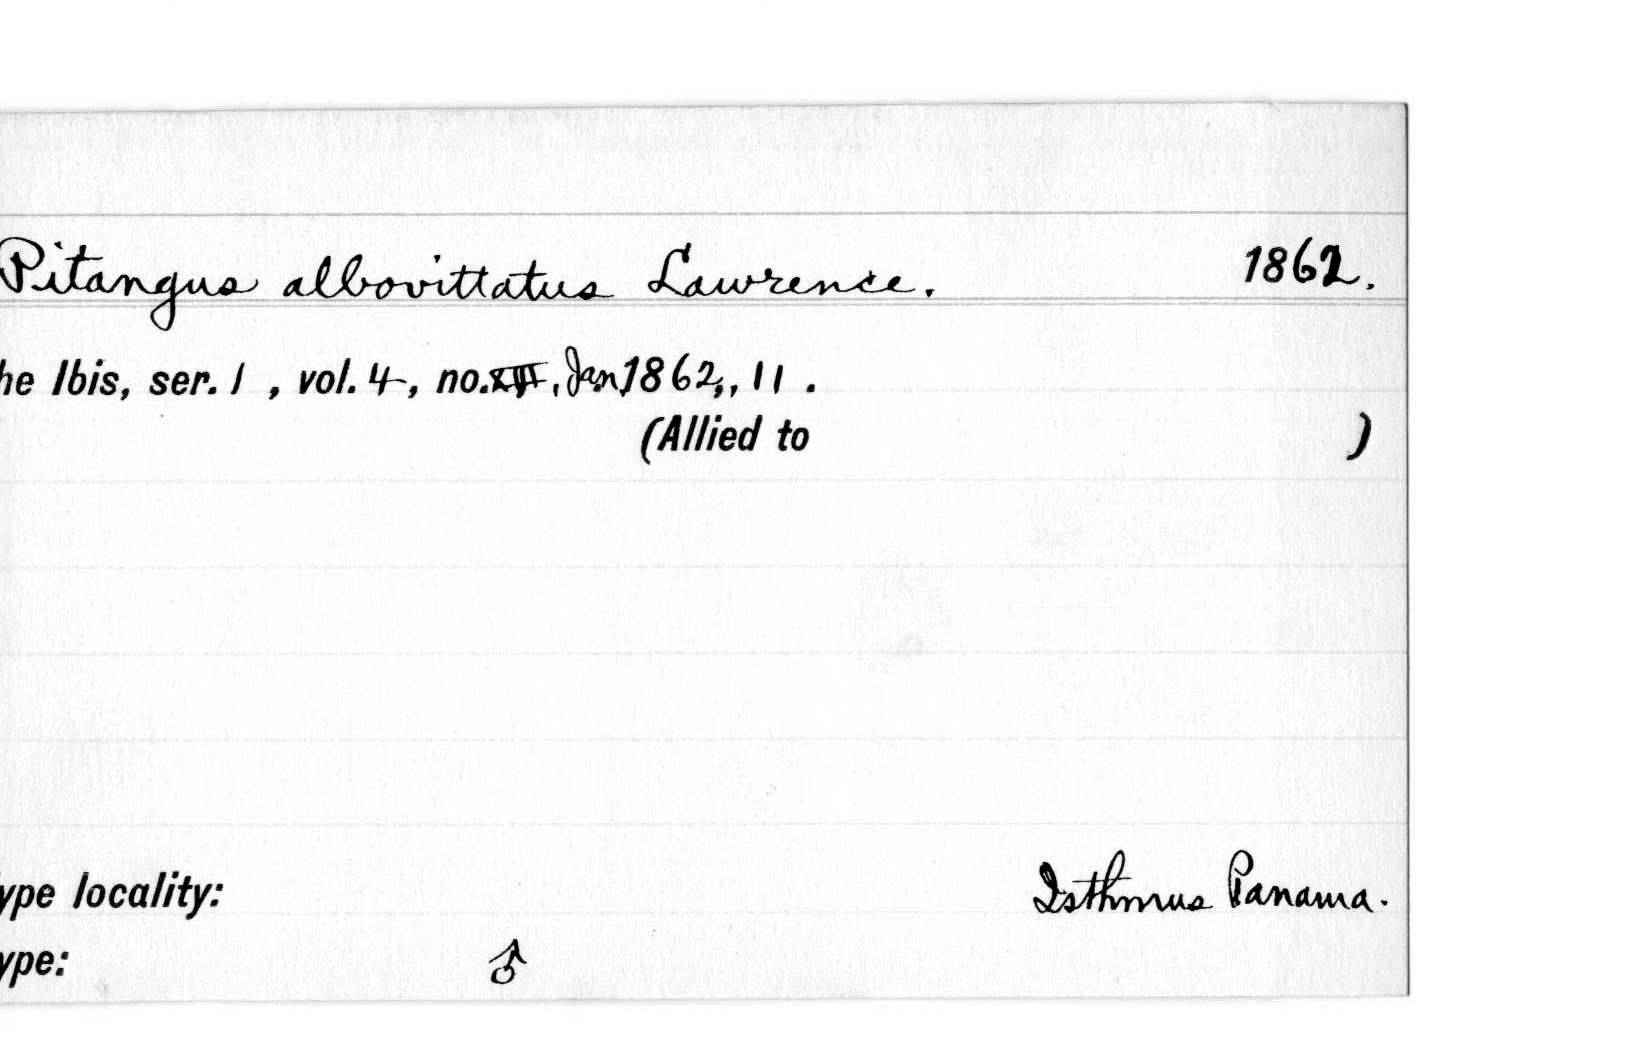 Pitangus albovittatus Lawrence. 1862.
he Ibis, ser. 1 , vol. 4 , no. , Jan 1862, , 11 .
(Allied to )
ype locality: Isthmus Panama.
ype: ♂